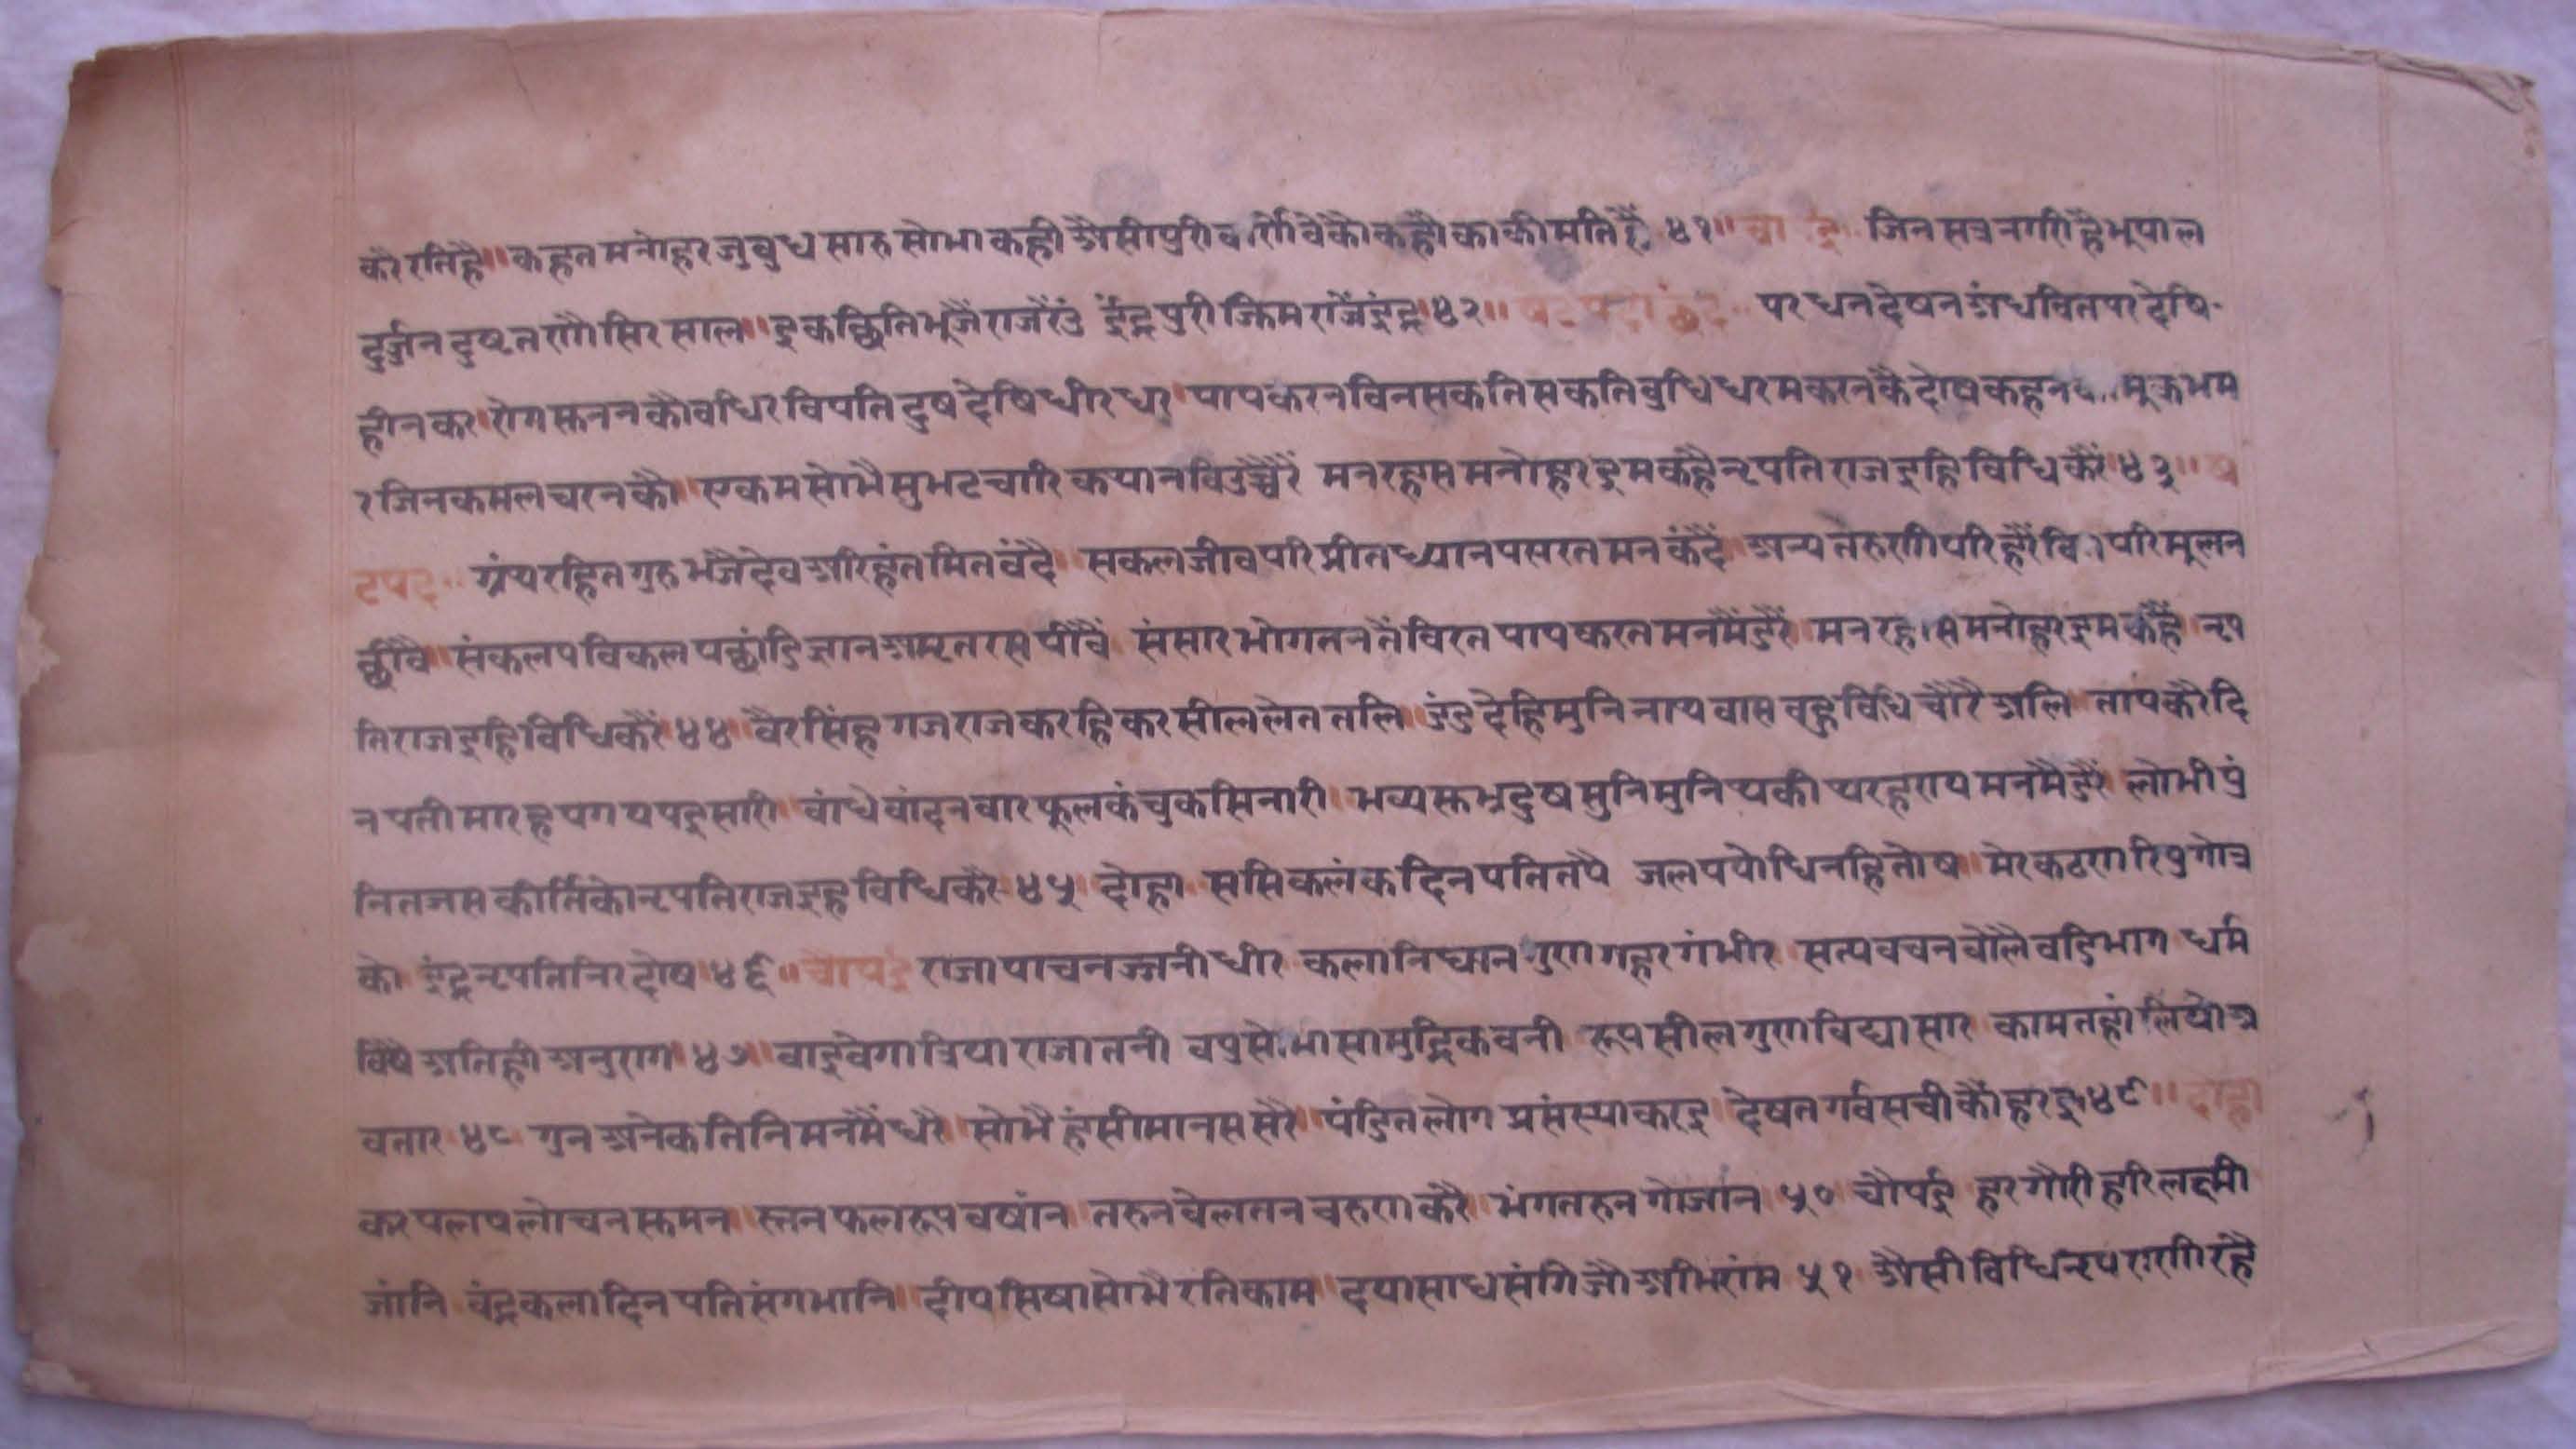 करै रतिहै॥ कहत मनोहर जु बुध सारु सोभा कही ऐसी पुरी व र्णिवेकौ कहौ काकी मति है ४१॥ जिनसत्र नगरी है भूपाल
दुर्ज्जन दुष्टनरणै सिरसाल॥ इक छिति भूजै राजै रंउ इंद्रपुरी जिम राजै इंद्र॥४२॥ षटपदा छंद परधन देषन अंध वित पर देषि
हीन कर॥ रोग सुननकौ वधिर विपति दुष देषि धीर धर॥ पाप करन विनसकति सकति बुधि धरम करनकै दोष कहन मूक भम
र जिन कमल चरनकौ॥ एकम सोभै सुभट चारि कथान विउच्चरै मनरहास मनोहर इम कहै नृपति राज इहि विधि करै॥४३॥ ष
टपद॥ ग्रंथ रहित गुरु भजै देव अरिहंत मित वंदै॥ सकल जीव परि प्रीत ध्यान पसरत मन कंदै अन्य तरुणी परिहरै वि परि मूलन
छीवै॥ संकलप विकलप छांडि ज्ञान अमृत रस पीवै संसार भोग तनतै विरत पाप करत मनमै डरै मनरहास मनोहर इम कहै नृप
ति राज इहि विधि करै॥४४॥ वैरसिंह गजराज करहि कर सील लेत तलि॥ डंड देहि मुनि नाथ वास बहु विधि चौरै अलि तापकरै दि
नपती मारह पगथ पइसारी॥ वांधे वांदनवार फूल कंचुकसि नारी॥ भव्य सुभ्र दुष मुनि मुनि थकी थरहराय मनमै डरै लोभी पुं
नि त जस कीर्तिको नृपति राज इह विधि करै ४५ दोहा ससि कलंक दिनपति तपै जल पयोधि नहि तोष॥ मेर कठण रिपु गोत्र
को इंद्र नृपति निरदोष॥४६॥ चौपइ राजा पाचनज्जनी धीर कलानिधान गुण गहर गंभीर सत्य वचन बोलै वडिभाग॥ धर्म
विषै अतिही अनुराग॥४७॥ वाइवेगा त्रिया राजा तनी वपु सोभा सामुद्रिक वनी रूप सील गुण विद्या सार कामतहां लियो अ
वतार॥४८ गुन अनेक तिनि मनमै धरै॥ सोभै हंसी मानस सरै॥ पंडित लोग प्रसंस्या करइ॥ देषत गर्व सचीकौ हरइ॥४९॥ दोहा
कर पलप लोचन सुमन॥ स्तन फल रूप वषांन॥ तरुन वेल तन वरुण करै॥ भंगतरुन गोजान ५० चौपई हर गौरी हरि लक्ष्मी
जांनि चंद्रकला दिनपति संग भानि॥ दीप सिषा सोभै रति काम॥ दया साध संगि जौ अभिरांम ५१ ऐसी विधि नृप राणी रहै